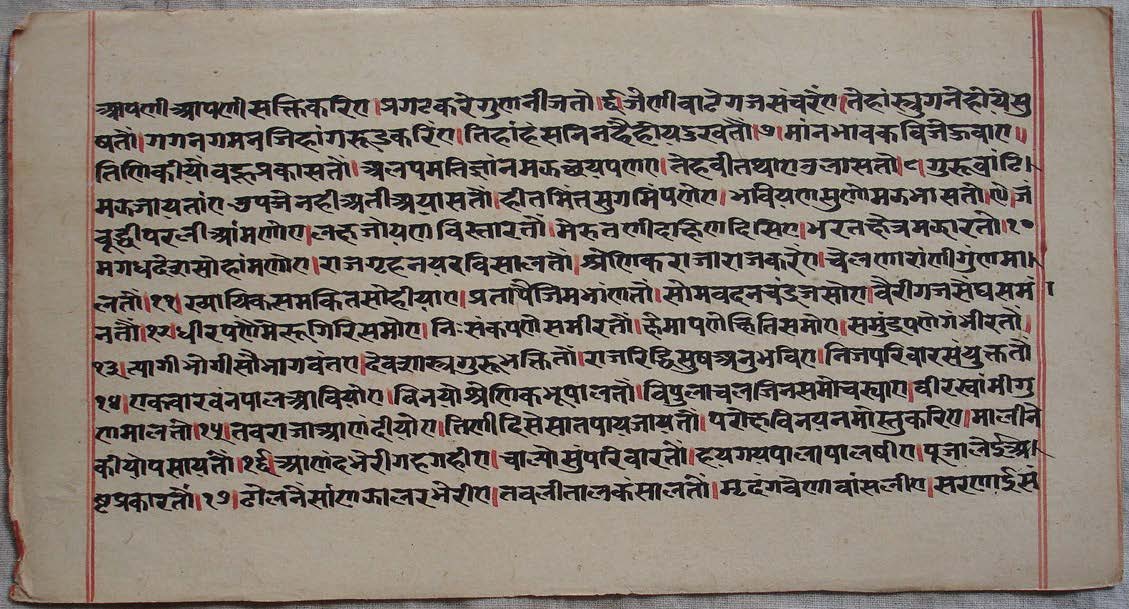 आपणी आपणी सक्ति करिए । प्रगट करे गुण नीजतो । ६ । जेणी वाटे गज संचरेंए । तेहां स्युग नेहीये सु
षतौ । गगन गमन जिहां गरूड करिंए । तिहां हंस निनहैहीय डरवतौ । ७ । मांनभावकविजे ऊवाए ॥
तिणि कीयौ बहू प्रकासतौ । अलपमति ज्ञांन मझ छयपणए । तेहवी तथाए उलासतौ । ८ । गुरू ब्रांदि ।
मझ जायतांए उपजै नही अती अयासतौं । हीतमिंत सुगमिंपणेए । भवियण सुणो मझ भासतौ । ९ । जं
बूद्वीप रली आंमणोए । लक्ष जोयण विस्तारतौं । मेरू तणी दक्षिण दिसिए । भरतक्षेत्र मझारतौ । १०
मगध देश सोहांमणोए । राजगृह नयर विसालतौं । श्रेणिक राजा राज करेंए । चेलणा रांणी गुंण मा ।
लतौं । ११ । ख्यायिक समकित सोहीयाए । प्रतापै जिम भांणतौं । सोमवदन चंद्र जसोए । वैरी गज संघ यमं ।
नतौं । १२ । धीरपणे मेरू गिरि समोए । निःसंकपणे समीरतौं । क्षेमापणे क्षिति समोए । समुंद्रपणे गंभीरतौं
१३ । त्यागी भोगी सौभागवंतए । देव शास्त्र गुरू भक्तितौं । राजरिद्धि सुष अनुभविए । निज परिवार संयुक्ततौ
१४ । एक वार वंनपाल आवियोए । विनयो श्रेणिक भूपालतौं । विपुलाचल जिन समोचस्याए । वीर स्वांमी गु
णमालतौ । १५ । तव राजा आणंदीयोए । तिणी दिसे सात पाय जायतौं । परोक्ष विनय नमोस्तु करिए । मालीने
कीयो पसायतौं । १६ । आणंद भेरी गहगहीए । चाल्यो सुंपरिवारतौं । हय गय पाला पालषीए । पूजा लेई अ ।
ष्ट प्रकारतौं । १७ । ढोल नें सांण झालर भेरीए । तवली ताल कंसालतौं । मृदंग वेणा वांसलीए । सरणाई सं